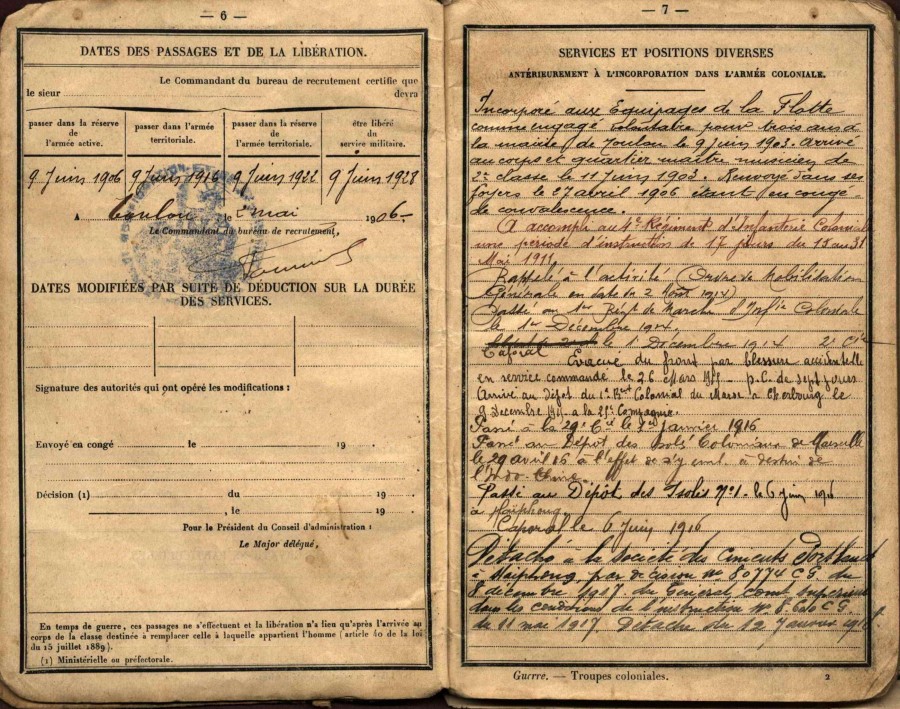 — 6 —
DATES DES PASSAGES ET DE LA LIBÉRATION.
Le Commandant du bureau de recrutement certifie que
le sieur devra
passer dans la réserve de l'armée active.
passer dans l'armée territoriale.
passer dans la réserve de l'armée territoriale.
être libéré du service militaire.
9 Juin 1906 9 Juin 1916 9 Juin 1922 9 Juin 1928
A Toulon, le 2 mai 1906.
Le Commandant du bureau de recrutement,
DATES MODIFIÉES PAR SUITE DE DÉDUCTION SUR LA DURÉE
DES SERVICES.
Signature des autorités qui ont opéré les modifications :
Envoyé en congé le 19
Décision (1) du 19
, le 19
Pour le Président du Conseil d'administration :
Le Major délégué,
En temps de guerre, ces passages ne s'effectuent et la libération n'a lieu qu'après l'arrivée au
corps de la classe destinée à remplacer celle à laquelle appartient l'homme (article 40 de la loi
du 15 juillet 1889).
(1) Ministérielle ou préfectorale.
— 7 —
SERVICES ET POSITIONS DIVERSES
ANTÉRIEUREMENT À L'INCORPORATION DANS L'ARMÉE COLONIALE.
Incorporé aux Equipages de la Flotte
comme engagé volontaire pour trois ans à
la mairie de Toulon le 9 Juin 1903. Arrivé
au corps et quartier maître musicien de
2e classe le 11 Juin 1903. Renvoyé dans ses
foyers le 27 abril 1906 étant en congé
de convalescence.
A accompli au 4e Régiment d'Infanterie Coloniale
une période d'instruction de 17 jours du 15 au 31
Mai 1911,
Rappelé à l'activité (Ordre de Mobilisation
Générale en date du 2 Août 1914)
Passé au 1er Regt de Marche d'Infie Coloniale
le 1er Décembre 1914.
le 1 Decembre 1914 2e Cie
Caporal Evacué du front par blessure accidentelle
en service commandé le 26 Mars p.C. de sept jours
Arrivé au Dépot du 1er Rgt Colonial du Maroc a Cherbourg le
9 Decembre a la 25e Compagnie.
Passé à la 29e Cie le Janvier 1916
Passé au Dépot des Isolés Coloniaux de Marseille
le 29 avril 16 à l'effet de s'y emb. à destin de
l'Indo-Chine.
Passé au Dépot des Isolés No 1. le 6 juin 1916
à Haiphong.
Caporal le 6 Juin 1916
Détaché à la Société des Ciments Portland
à Haiphong par décision No 80774 CG du
8 décembre 1917 du général Comt Supérieur
dans les conditions de l'instruction No CG.
du 11 mai 1917. Détaché du 12 Janvier
Guerre. — Troupes coloniales. 2